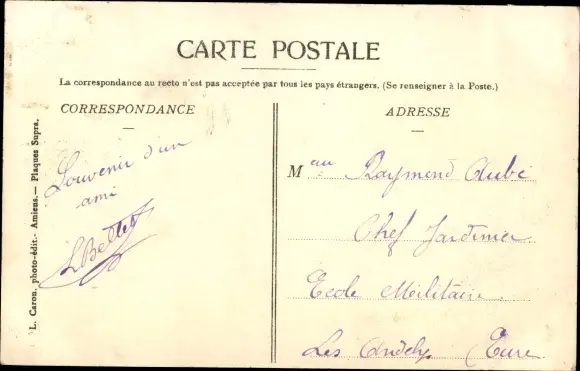 CARTE POSTALE
La correspondance au recto n'est pas acceptée par tous les pays étrangers. (Se renseigner à la Poste.)
CORRESPONDANCE
Souvenir d'un
ami
L Bellet
L. Caron, photo-édit.- Amiens.— Plaques Supra.
ADRESSE
Mau Raymond Aubé
Chef Jardinier
Ecole Militaire
Les Andelys Eure